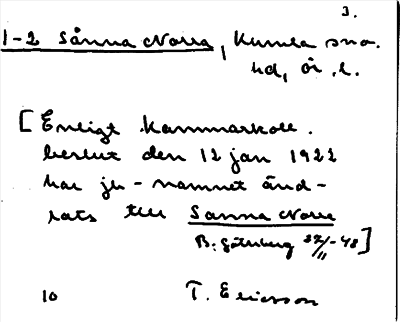 3.
1-2 Sånna Norra, Kumla sn o.
hd, Ör. l.
[Enligt Kammarkoll.
beslut den 12 jan 1922
har jb-namnet änd-
rats till Sanna Norra
B. Göteborg 27/11-48]
10 T. Ericsson